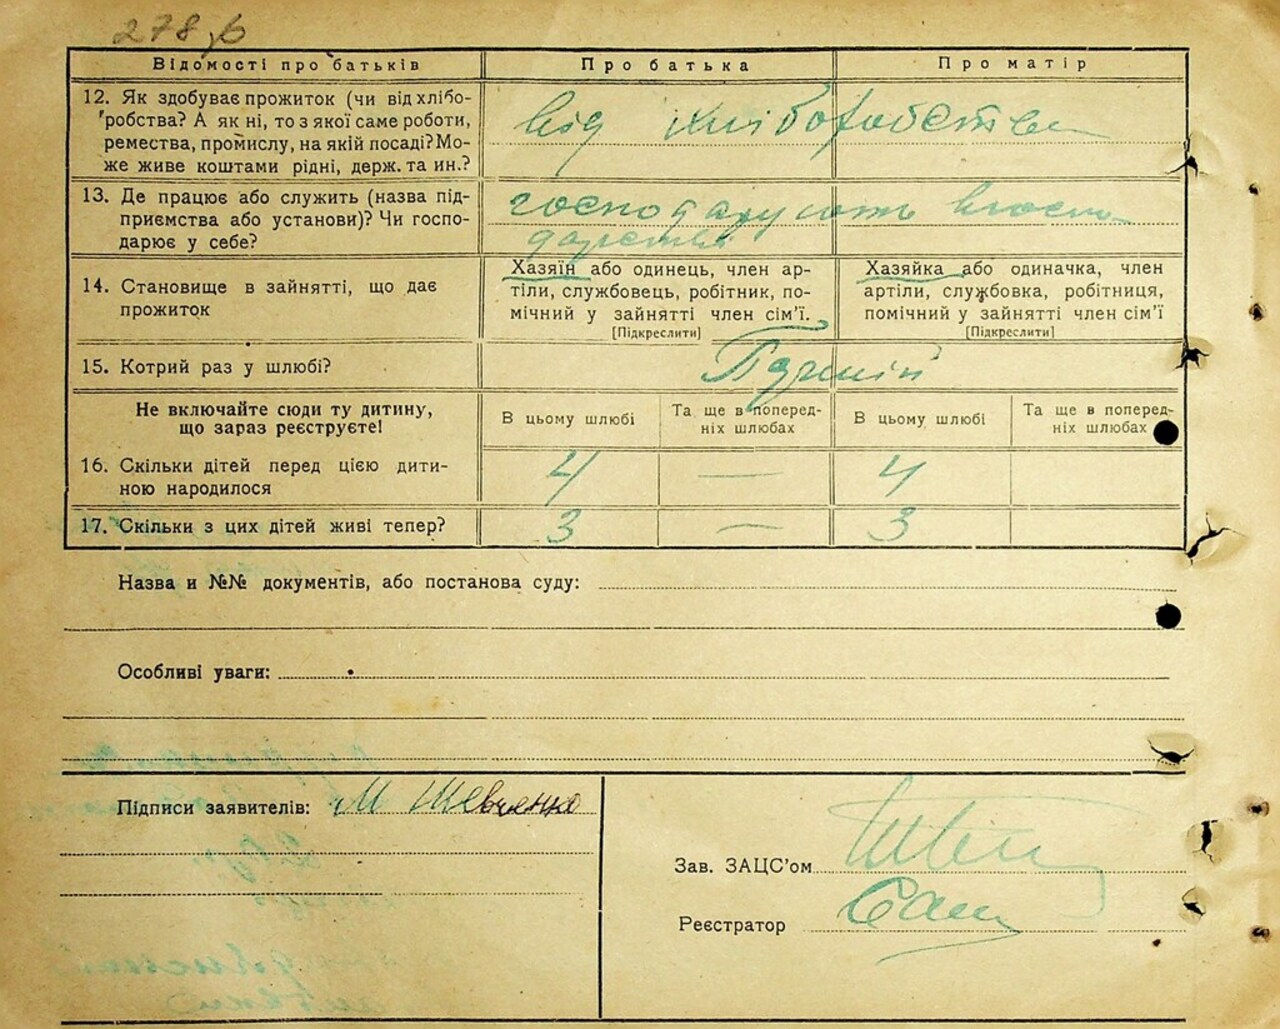 278 зв
Відомості про батьків
Про батька
Про матір
12. Як здобуває прожиток (чи від хлібо-
робства? А як ні, то з якої саме роботи,
ремества, промислу, на якій посаді? Мо-
же живе коштами рідні, держ. та ин.?
від хліборобства
13. Де працює або служить (назва під-
приємства або установи)? Чи госпо-
дарює у себе?
господарують в госпо-
дарстві
14. Становище в зайнятті, що дає
прожиток
Хазяїн або одинець, член ар-
тіли, службовець, робітник, по-
мічний у зайнятті член сім'ї.
[Підкреслити]
Хазяйка або одиначка, член
артіли, службовка, робітниця,
помічний у зайнятті член сім'ї
[Підкреслити]
15. Котрий раз у шлюбі?
Не включайте сюди ту дитину,
що зараз реєструєте!
В цьому шлюбі
Та ще в поперед-
ніх шлюбах
В цьому шлюбі
Та ще в поперед-
ніх шлюбах
16. Скільки дітей перед цією дити-
ною народилося
4 — 4
17. Скільки з цих дітей живі тепер?
3 — 3
Назва и №№ документів, або постанова суду:
Особливі уваги:
Підписи заявителів: М Шевченко
Зав. ЗАЦС'ом
Реєстратор